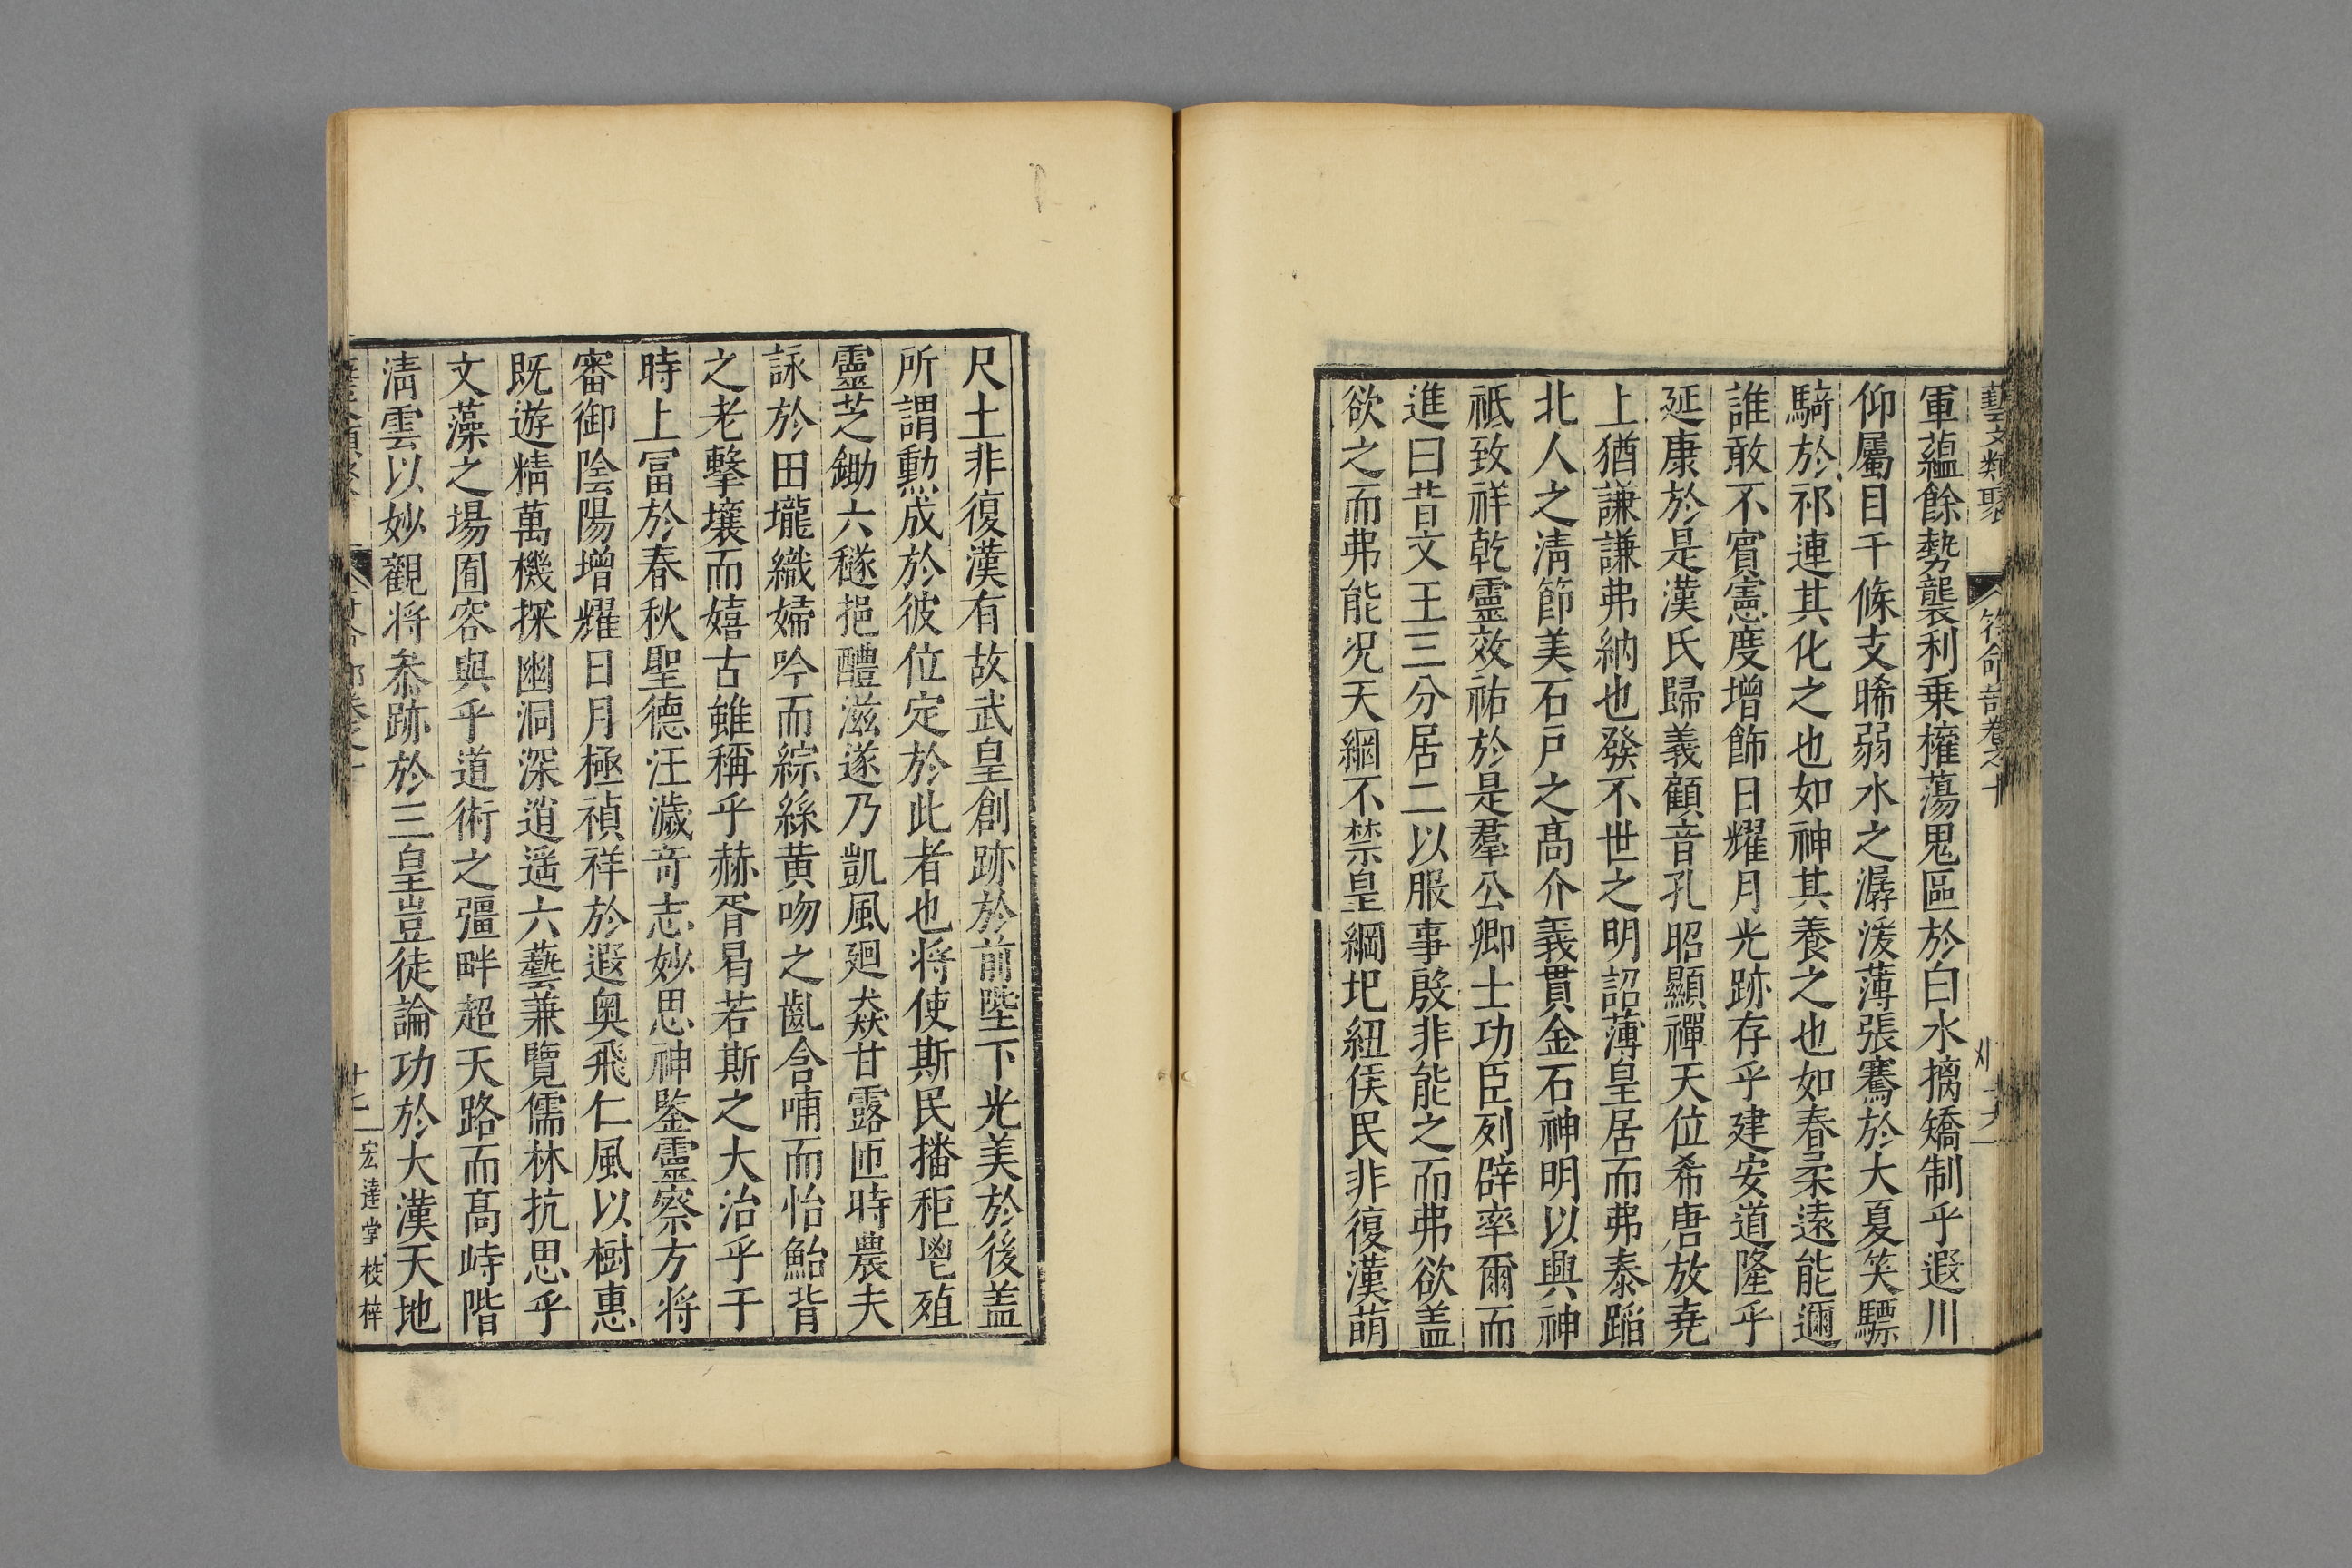 藝文類聚 符命部卷之十
軍蘊餘勢襲利乗權蕩鬼區於白水擒矯制乎遐川
仰屬目千條支晞弱水之潺湲薄張騫於大夏笑驃
騎於祁連其化之也如神其養之也如春柔遠能邇
誰敢不賓憲度增飾日耀月光跡存乎建安道隆乎
延康於是漢氏歸義顧音孔昭顯禪天位希唐放堯
上猶謙謙弗納也發不世之明詔薄皇居而弗泰蹈
北人之清節美石戸之髙介義貫金石神明以興神
祗致祥乾靈效祐於是羣公卿士功臣列辟率爾而
進曰昔文王三分居二以服事殷非能之而弗欲盖
欲之而弗能况天網不禁皇綱圯紐侯民非復漢萌
尺土非復漢有故武皇創跡於前陛下光美於後盖
所謂勲成於彼位定於此者也将使斯民播秬鬯殖
靈芝鋤六穟挹醴滋遂乃凱風廻焱甘露匝時農夫
詠於田壠織婦吟而綜絲黄吻之齓含哺而怡鮐背
之老擊壤而嬉古雖稱乎赫胥曷若斯之大治乎于
時上冨於春秋聖德汪濊竒志妙思神鑒靈察方将
審御陰陽增耀日月極禎祥於遐奥飛仁風以樹惠
既遊精萬機探幽洞深逍遥六藝兼覽儒林抗思乎
文藻之場囿容與乎道術之疆畔超天路而髙峙階
清雲以妙觀将叅跡於三皇豈徒論功於大漢天地
宏逹堂校梓